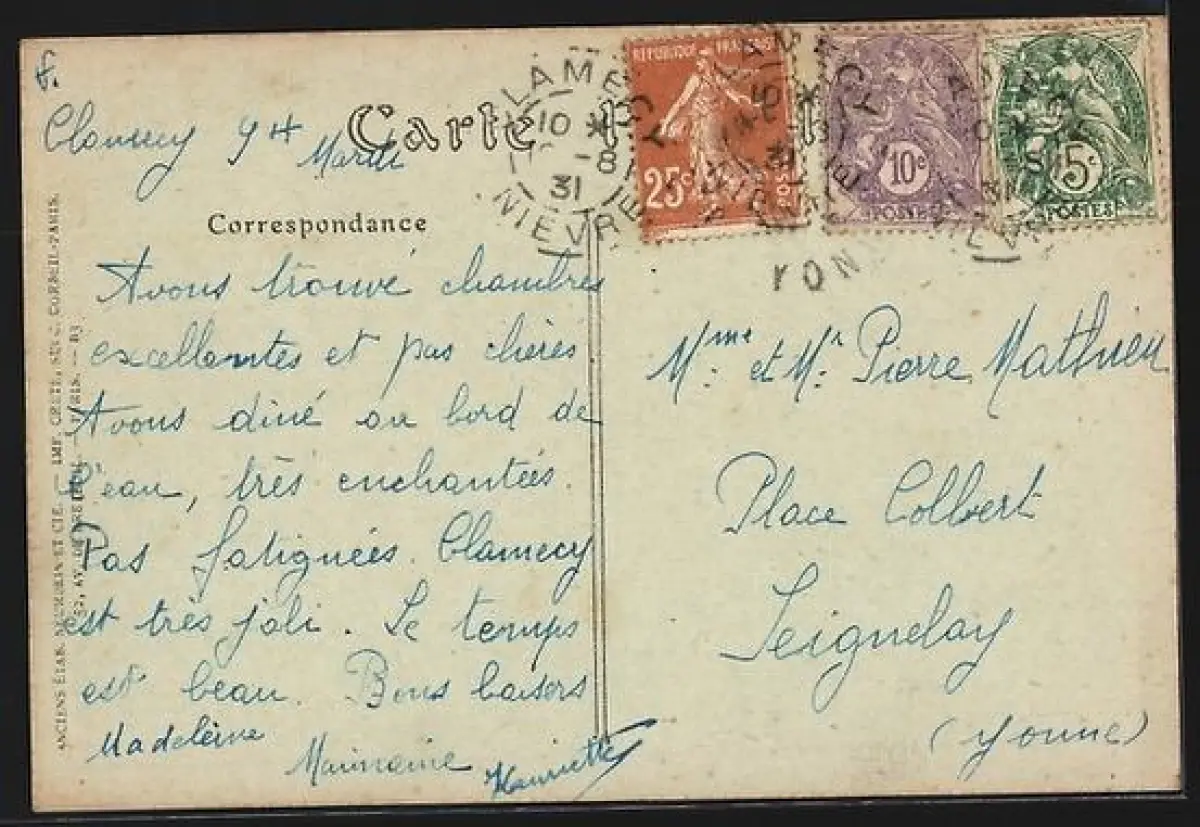 Clamecy 9H
Mardi
Carte
Correspondance
Avons trouvé chambres
excellentes et pas chères
Avons diné au bord de
l'eau, très enchantées.
Pas fatiguées. Clamecy
est très joli. Le temps
est beau. Bons baisers
Madeleine
Mainaine Henriette
CLAMECY
10 *
-8
31
NIEVRE
REPUBLIQUE FRANÇAISE
25c
POSTES
10c
POSTES
5c
POSTES
YON
Mme et Mr Pierre Mathieu
Place Colbert
Seignelay
(Yonne)
ANCIENS ÉTAB. NEURDEIN ET CIE. — IMP. CRÉTÉ, SUCC. CORBEIL-PARIS.
52, AV. DE BRETEUIL, PARIS. — 83